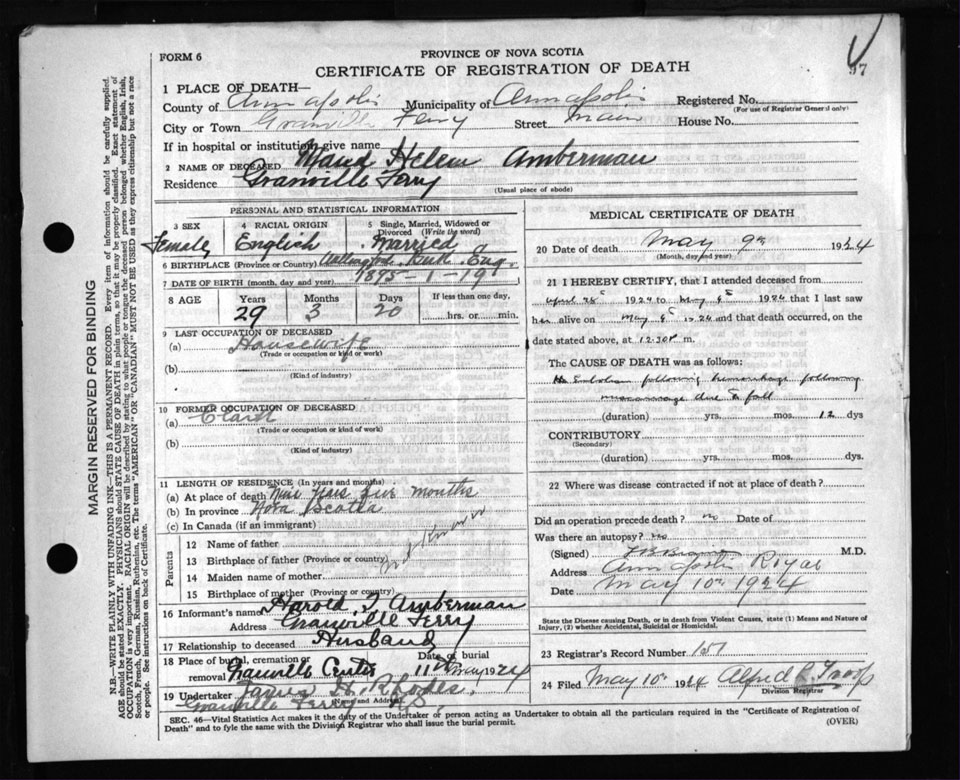 FORM 6
PROVINCE OF NOVA SCOTIA
CERTIFICATE OF REGISTRATION OF DEATH
97
1 PLACE OF DEATH—
County of Annapolis Municipality of Annapolis Registered No.
(For use of Registrar General only)
City or Town Granville Ferry Street Main House No.
If in hospital or institution, give name
2 NAME OF DECEASED Maud Helen Amberman
Residence Granville Ferry
(Usual place of abode)
PERSONAL AND STATISTICAL INFORMATION
3 SEX Female
4 RACIAL ORIGIN English
5 Single, Married, Widowed or Divorced (Write the word) Married
6 BIRTHPLACE (Province or Country) Eng.
7 DATE OF BIRTH (month, day and year) 1895-1-19
8 AGE Years 29 Months 3 Days 20 If less than one day, hrs. or min.
9 LAST OCCUPATION OF DECEASED
(a) Housewife
(Trade or occupation or kind or work)
(b)
(Kind of industry)
10 FORMER OCCUPATION OF DECEASED
(a)
(Trade or occupation or kind of work)
(b)
(Kind of industry)
11 LENGTH OF RESIDENCE (In years and months)
(a) At place of death Nine years five months
(b) In province Nova Scotia
(c) In Canada (if an immigrant)
Parents
12 Name of father
13 Birthplace of father (Province or country)
14 Maiden name of mother
15 Birthplace of mother (Province or country)
16 Informant's name Harold Amberman
Address Granville Ferry
17 Relationship to deceased Husband
18 Place of burial, cremation or removal Granville Centre Date of burial 11th May 24
19 Undertaker Rhodes
(Name and Address) Granville Ferry N.S.
MEDICAL CERTIFICATE OF DEATH
20 Date of death May 9th 1924
(Month, day and year)
21 I HEREBY CERTIFY, that I attended deceased from
April 28 1924 to May 1924 that I last saw
her alive on May 1924 and that death occurred, on the
date stated above, at 12.30 P m.
The CAUSE OF DEATH was as follows:
Embolism following hemorrhage following
miscarriage due to fall
(duration) yrs. mos. 12 dys
CONTRIBUTORY
(Secondary)
(duration) yrs. mos. dys.
22 Where was disease contracted if not at place of death?
Did an operation precede death? no Date of
Was there an autopsy? no
(Signed) M.D.
Address Annapolis Royal
Date May 10th 1924
State the Disease causing Death, or in death from Violent Causes, state (1) Means and Nature of Injury, (2) whether Accidental, Suicidal or Homicidal.
23 Registrar's Record Number 151
24 Filed May 10th 1924 Alfred Troop
Division Registrar
SEC. 46—Vital Statistics Act makes it the duty of the Undertaker or person acting as Undertaker to obtain all the particulars required in the "Certificate of Registration of
Death" and to fyle the same with the Division Registrar who shall issue the burial permit.
(OVER)
MARGIN RESERVED FOR BINDING
N.B.—WRITE PLAINLY WITH UNFADING INK—THIS IS A PERMANENT RECORD. Every item of information should be carefully supplied.
AGE should be stated EXACTLY. PHYSICIANS should STATE CAUSE OF DEATH in plain terms, so that it may be properly classified. Exact statement of
OCCUPATION is very important. RACIAL ORIGIN will be described by stating to what people or tongue the deceased person belonged whether English, Irish,
Scotch, French, German, Russian, Ruthenian, etc. The terms "AMERICAN" OR "CANADIAN" MUST NOT BE USED as they express citizenship but not a race
or people. See instructions on back of Certificate.